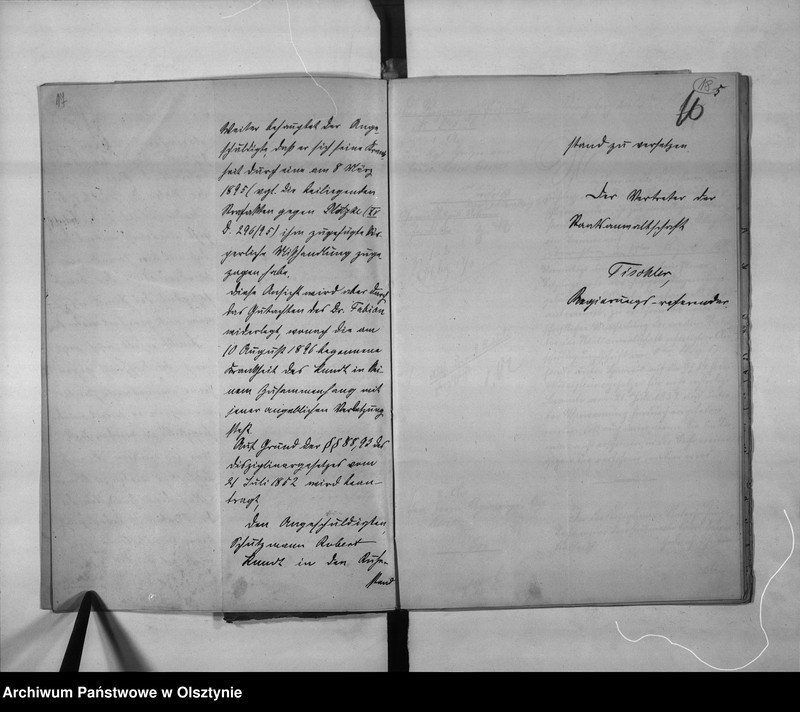 17
Weiter behauptet der Ange
schuldigte, daß er sich seine Krank
heit durch eine am 8 März
1895 (vgl. die beiliegenden
Strafakten gegen Plotzki (IV
D. 296/95) ihm zugefügte kör
perliche Mißhandlung zuge
zogen habe.
Diese Ansicht wird aber durch
das Gutachten des Dr. Fabian
widerlegt, wonach die am
10 August 1896 begonnene
Krankheit des Kundt in kei
nem Zusammenhang mit
jener angeblichen Verletzung
steht.
Auf Grund der §§ 88, 93 des
Disziplinargesetzes vom
21 Juli 1852 wird bean-
tragt,
den Angeschuldigten,
Schutzmann Robert
Kundt in den Ruhe-
stand
18 5
16
stand zu versetzen
Der Vertreter der
Staatsanwaltschaft
Tischler,
Regierungs-referendar
Archiwum Państwowe w Olsztynie